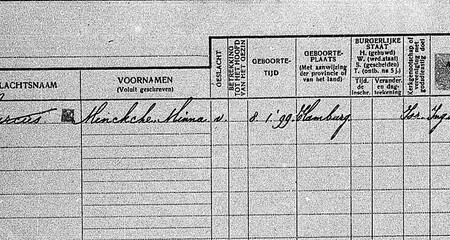 LACHTSNAAM
VOORNAMEN
(Voluit geschreven)
GESLACHT
BETREKKING
TOT HET HOOFD
VAN HET GEZIN
GEBOORTE-
TIJD
GEBOORTE-
PLAATS
(Met aanwijzing
der provincie of
van het land)
BURGERLIJKE
STAAT
H. (gehuwd)
W. (wed.staat)
S. (gescheiden)
T. (ontb. na 5 j.)
Tijd.
de
inschr.
Verander.
en dag-
teekening
Kerkgenootschap of
vereeniging met
godsdienstig doel
Menckche, Minna v. 8.1.'99 Hamburg Isr.